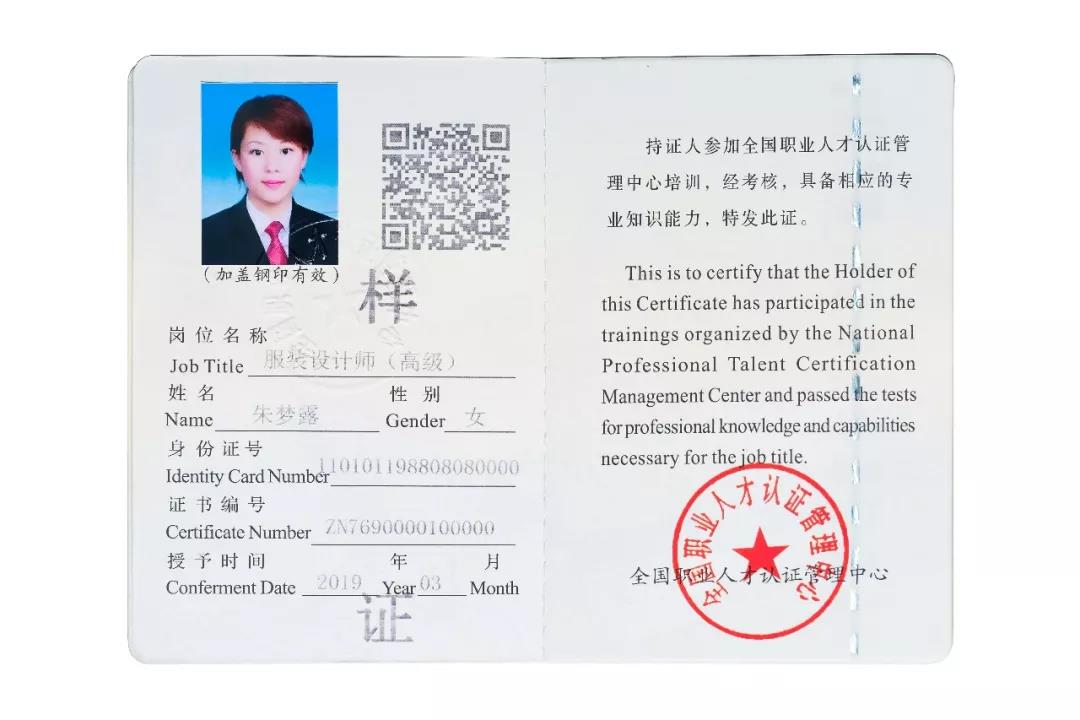 (加盖钢印有效)
样
岗位名称
Job Title 服装设计师（高级）
姓名 性别
Name 朱梦露 Gender 女
身份证号
Identity Card Number 110101198808080000
证书编号
Certificate Number ZN7690000100000
授予时间 年 月
Conferment Date 2019 Year 03 Month
证
持证人参加全国职业人才认证管
理中心培训，经考核，具备相应的专
业知识能力，特发此证。
This is to certify that the Holder of
this Certificate has participated in the
trainings organized by the National
Professional Talent Certification
Management Center and passed the tests
for professional knowledge and capabilities
necessary for the job title.
全国职业人才认证管理中心
全国职业人才认证管理中心